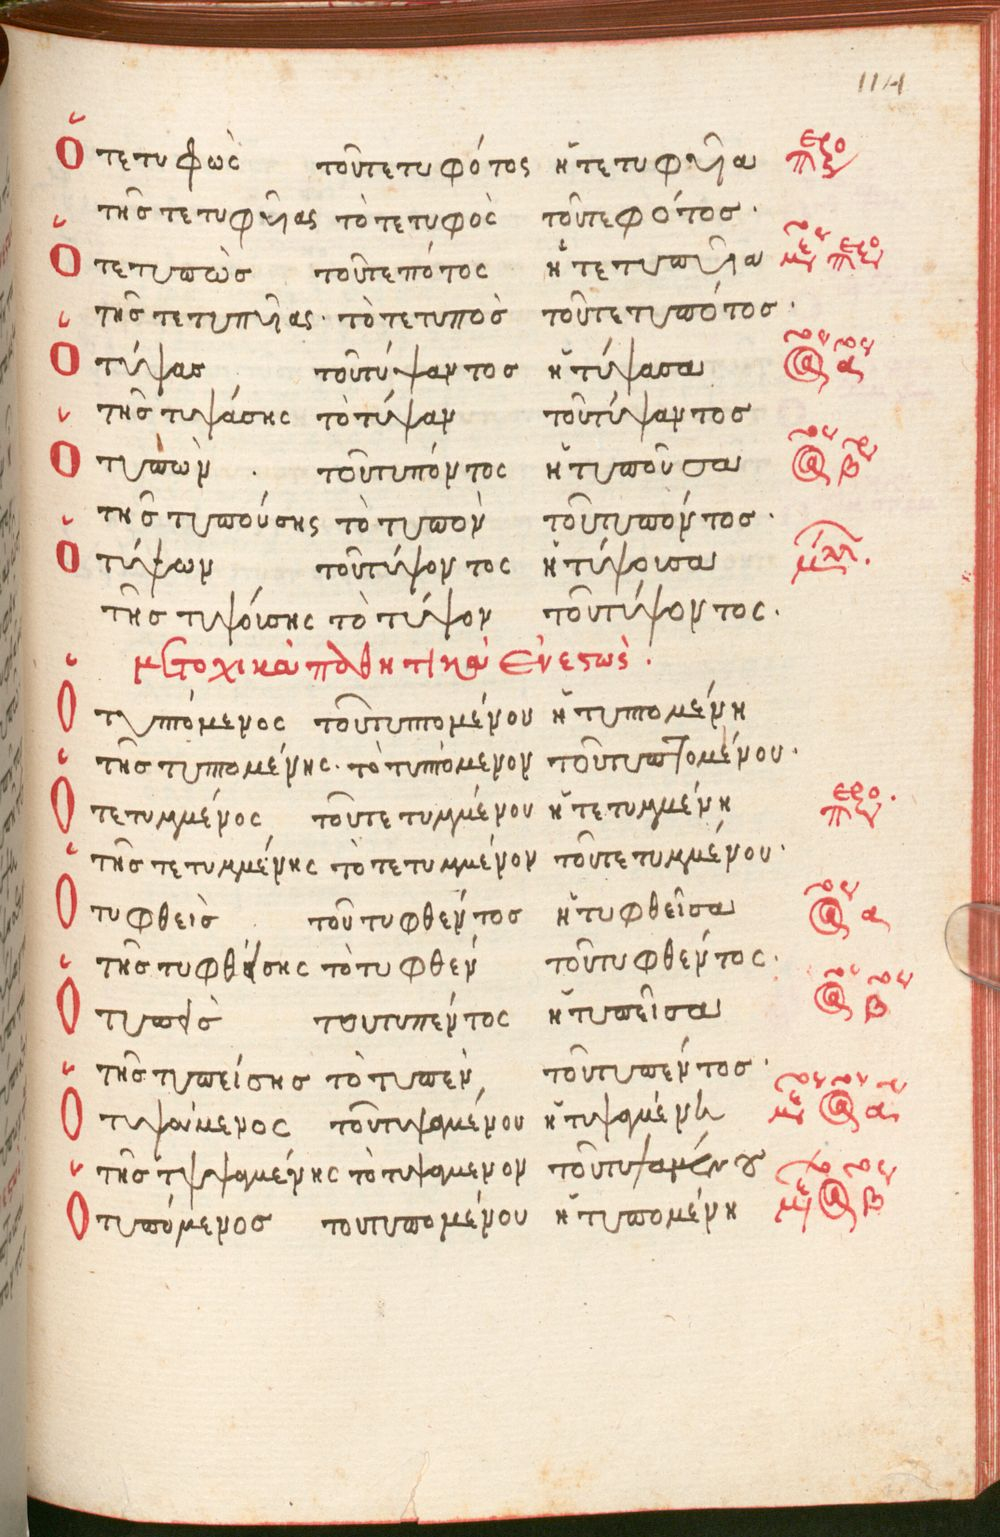 114
Ὁ τετυφὼς τοῦ τετυφότος ἡ τετυφυῖα
τῆς τετυφυίας τὸ τετυφὸς τοῦ τεφότος·
Ὁ τετυπὼς τοῦ τεπότος ἡ τετυπυῖα
τῆς τετυπυίας· τὸ τετυπὸς τοῦ τετυπότος·
Ὁ τύψας τοῦ τύψαντος ἡ τύψασα
τῆς τυψάσης τὸ τύψαν τοῦ τύψαντος
Ὁ τυπὼν τοῦ τυπόντος ἡ τυποῦσα
τῆς τυπούσης τὸ τυπὸν τοῦ τυπόντος·
Ὁ τύψων τοῦ τύψοντος ἡ τύψουσα
τῆς τυψούσης τὸ τύψον τοῦ τύψοντος·
μετοχικὰ παθητικὰ Ἐνεστώς·
Ὁ τυπτόμενος τοῦ τυπτομένου ἡ τυπτομένη
τῆς τυπτομένης· τὸ τυπτόμενον τοῦ τυπτομένου·
Ὁ τετυμμένος τοῦ τετυμμένου ἡ τετυμμένη
τῆς τετυμμένης τὸ τετυμμένον τοῦ τετυμμένου·
Ὁ τυφθεὶς τοῦ τυφθέντος ἡ τυφθεῖσα
τῆς τυφθείσης τὸ τυφθέν τοῦ τυφθέντος·
Ὁ τυπεὶς του τυπέντος ἡ τυπεῖσα
τῆς τυπείσης τὸ τυπὲν τοῦ τυπέντος·
Ὁ τυψάμενος τοῦ τυψαμένου ἡ τυψαμένη
τῆς τυψαμένης τὸ τυψάμενον τοῦ τυψαμένου
Ὁ τυπόμενος του τυπομένου ἡ τυπομένη